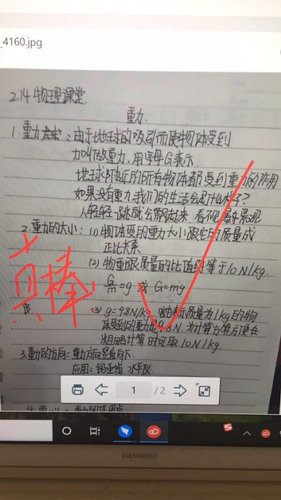 _4160.jpg
2.14物理课堂
重力
1.重力: 由于地球的吸引而使物体受到
力叫做重力,用字母G表示
地球附近的所有物体都受到重力的作用
如果没有重力,我们的生活会是什么样子?
人轻轻一跳就会飘起来
2.重力的大小: (1)物体受的重力大小跟它的质量成
正比关系
(2) 物重跟质量的比值约等于10N/kg
G/m=g 或 G=mg
真棒
(3) g=9.8N/kg 质量为1kg的物
体受到的重力是9.8N 为计算方便
粗略计算时可取10N/kg
3.重力的方向: 重力方向竖直向下
应用: 铅垂线 水平仪
1
/2
HUAWEI